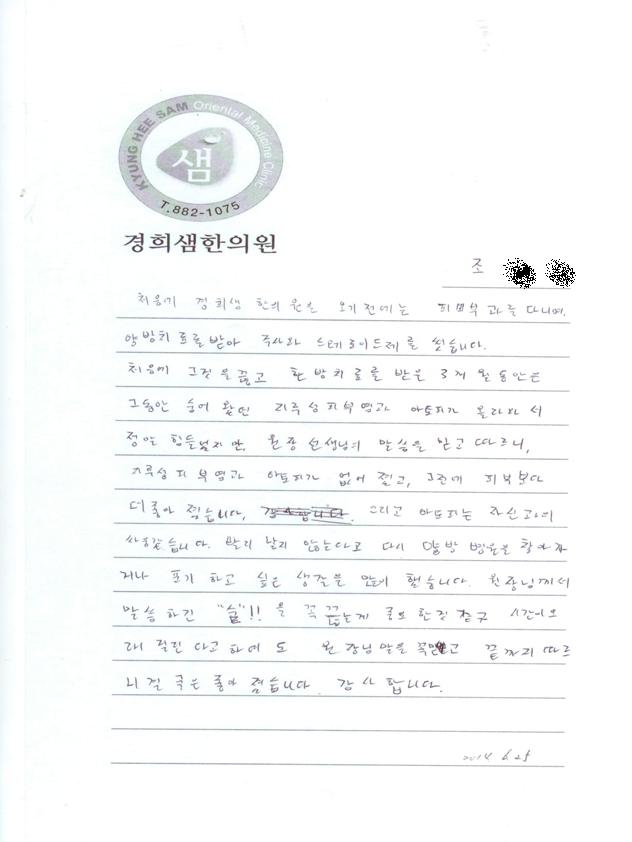 KYUNG HEE SAM Oriental Medicine Clinic
샘
T.882-1075
경희샘한의원
조
처음에 경희샘 한의원을 오기전에는 피부과를 다니며,
양방치료를받아 주사와 스테로이드제를 썼습니다.
처음에 그것을 끊고 한방치료를 받은 3개월동안은
그동안 숨어 왔던 지루성피부염과 아토피가 올라와서
정말 힘들었지만, 원장선생님의 말씀을 믿고 따르니,
지루성피부염과 아토피가 없어 졌고, 그전에 피부보다
더좋아 졌습니다. 감사합니다. 그리고 아토피는 자신과의
싸움같습니다. 빨리 낫지 않는다고 다시 양방 병원을 찾아가
거나 포기 하고 싶은 생각을 많이 했습니다. 원장님께서
말씀 하신 "술"!! 을 꼭 끊는게 중요한것 같구 시간이오
래 걸린 다고하여도 원장님말을 꼭믿고 끝까지 따르
니 결국은 좋아 졌습니다. 감사 합니다.
2014. 6. 25